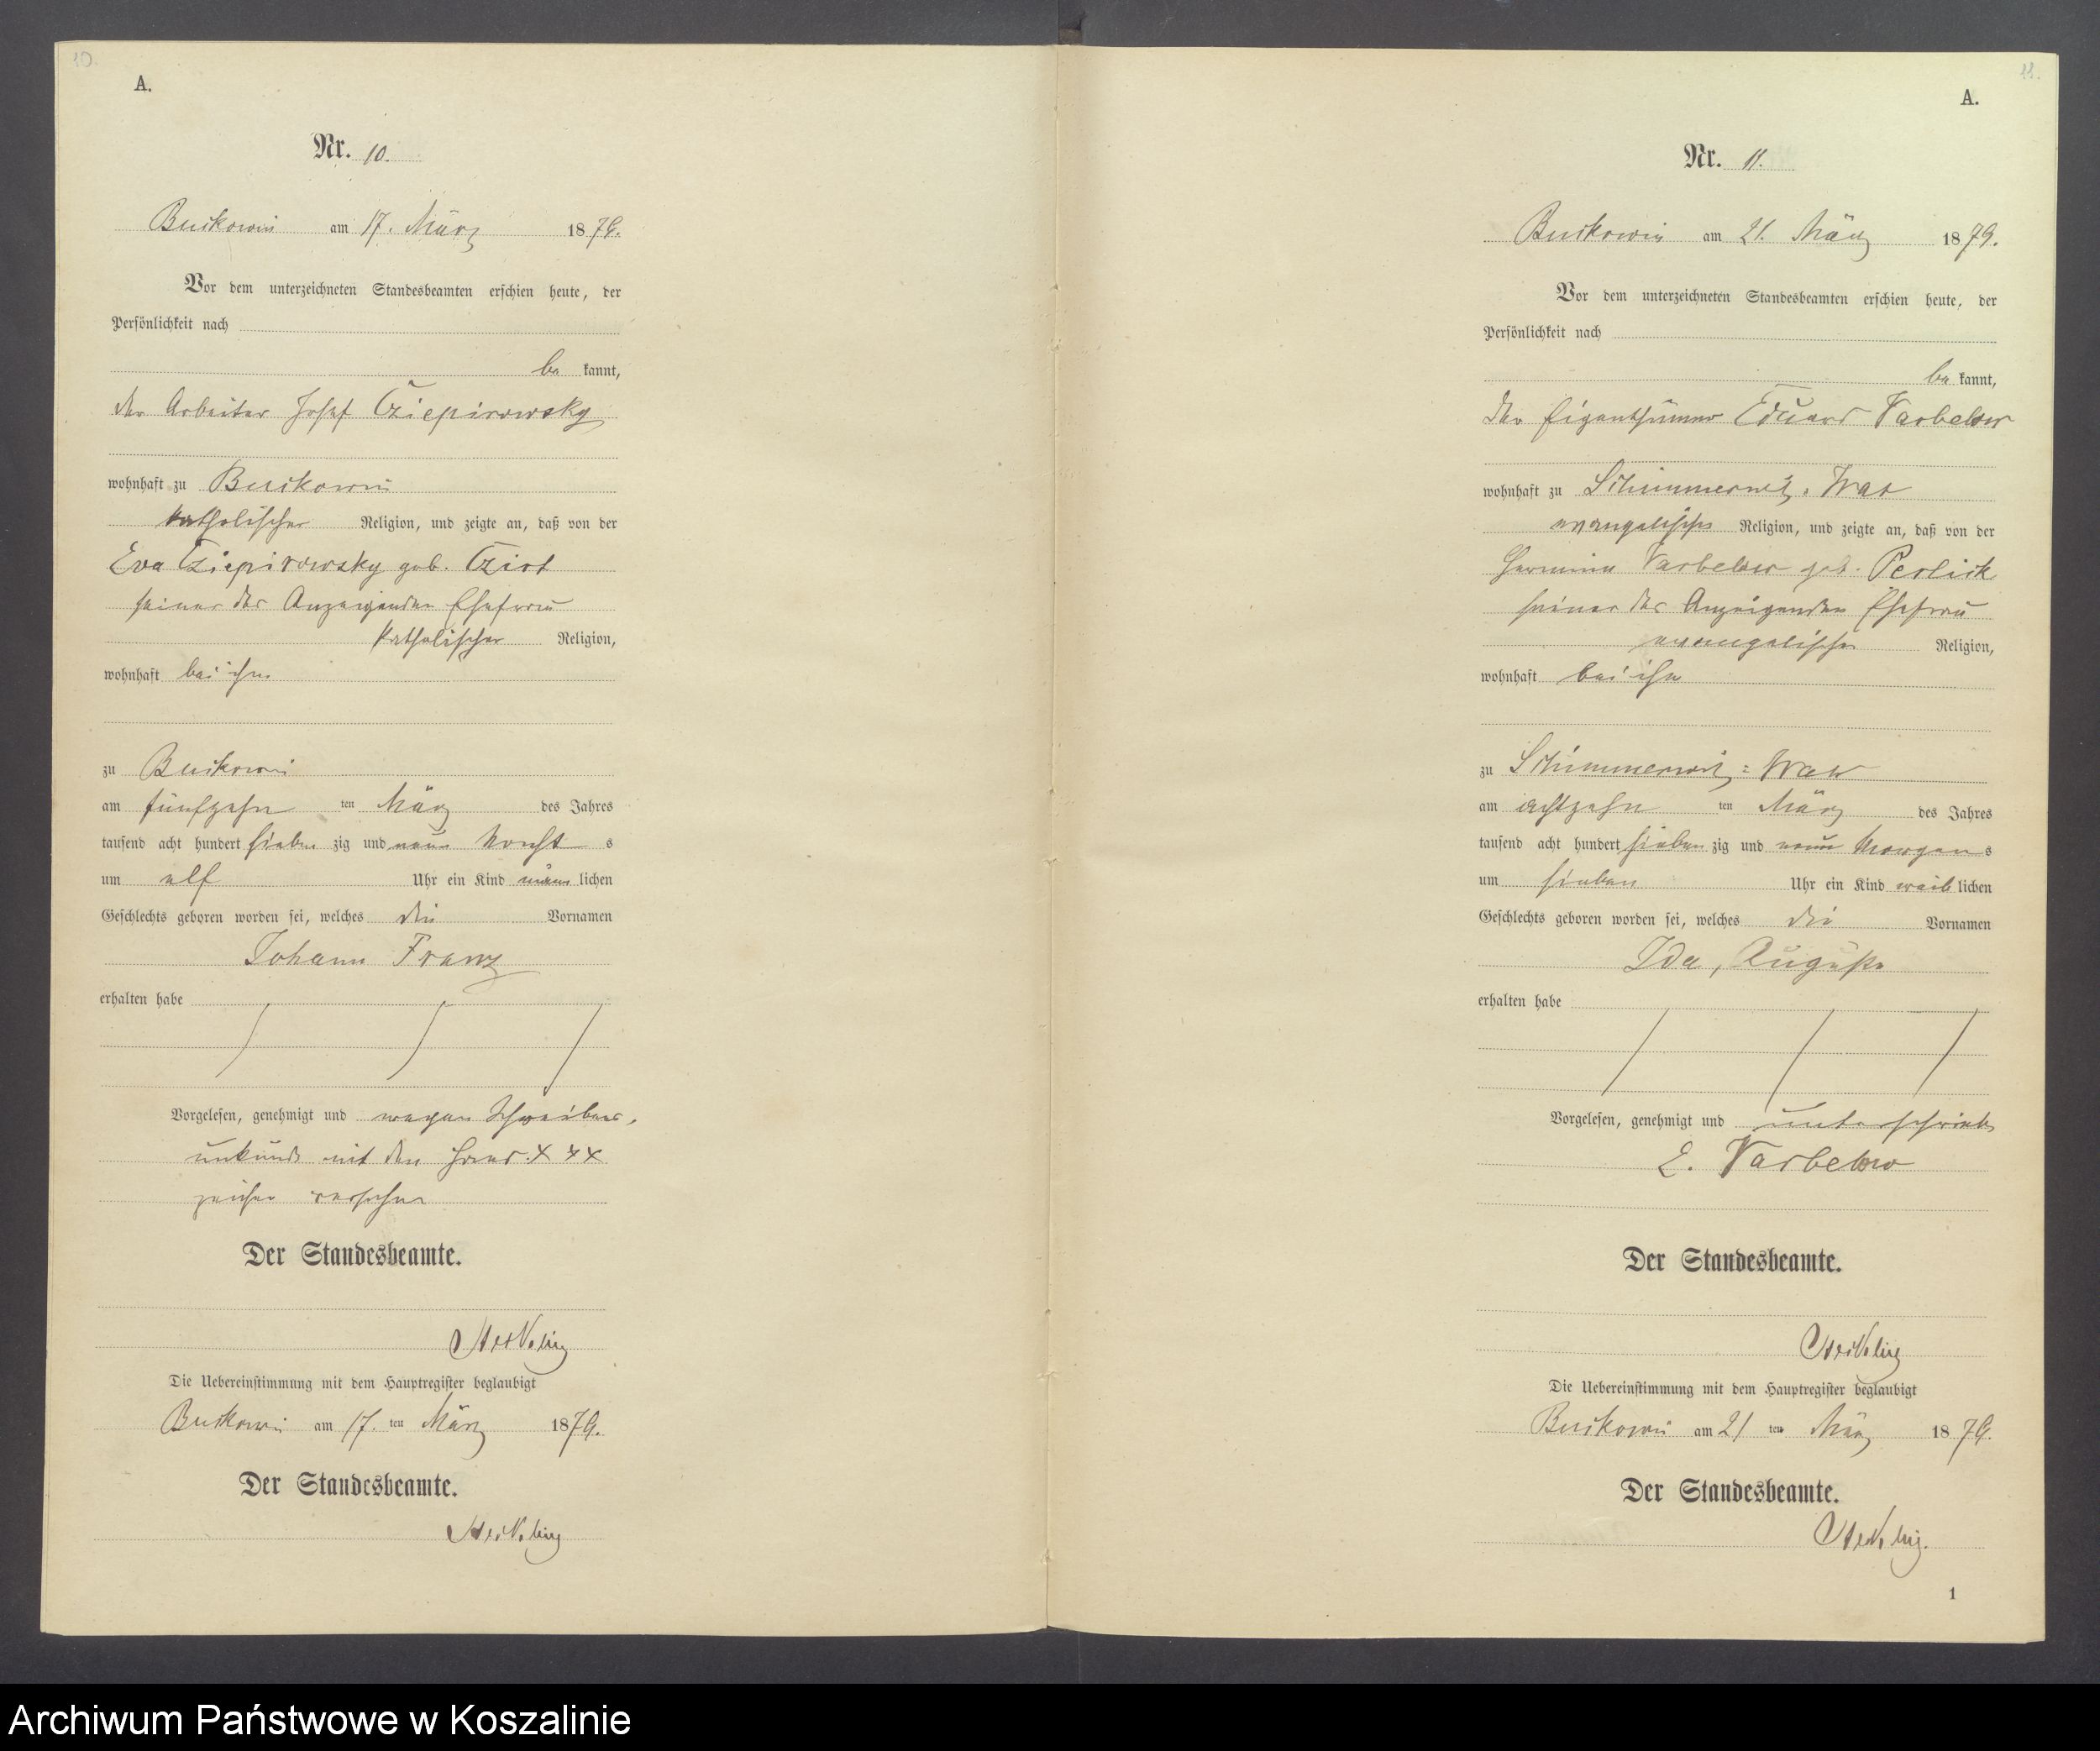 10.
A.
Nr. 10.
Buckowin am 17. März 1879.
Vor dem unterzeichneten Standesbeamten erschien heute, der
Persönlichkeit nach
be kannt,
der Arbeiter Josef Cziepirowsky
wohnhaft zu Buckowin
katholischer Religion, und zeigte an, daß von der
Eva Cziepirowsky geb.
seiner des Anzeigenden Ehefrau
katholischer Religion,
wohnhaft bei ihm
zu Buckowin
am fünfzehn ten März des Jahres
tausend acht hundert sieben zig und neun Nacht s
um elf Uhr ein Kind männ lichen
Geschlechts geboren worden sei, welches die Vornamen
Johann Franz
erhalten habe
Vorgelesen, genehmigt und wegen Schreibens-
unkunde mit den Hand x x x
zeichen versehen
Der Standesbeamte.
Die Uebereinstimmung mit dem Hauptregister beglaubigt
Buckowin am 17. ten März 1879.
Der Standesbeamte.
11.
A.
Nr. 11.
Buckowin am 21. März 1879.
Vor dem unterzeichneten Standesbeamten erschien heute, der
Persönlichkeit nach
be kannt,
der Eigenthümer Eduard Varbelow
wohnhaft zu Schimmerwitz
evangelischer Religion, und zeigte an, daß von der
Hermine Varbelow geb. Perlick
seiner des Anzeigenden Ehefrau
evangelischer Religion,
wohnhaft bei ihm
zu Schimmerwitz
am achtzehn ten März des Jahres
tausend acht hundert sieben zig und neun Morgen s
um sieben Uhr ein Kind weib lichen
Geschlechts geboren worden sei, welches die Vornamen
Ida, Auguste
erhalten habe
Vorgelesen, genehmigt und unterschrieben
E. Varbelow
Der Standesbeamte.
Die Uebereinstimmung mit dem Hauptregister beglaubigt
Buckowin am 21 ten März 1879.
Der Standesbeamte.
1
Archiwum Państwowe w Koszalinie